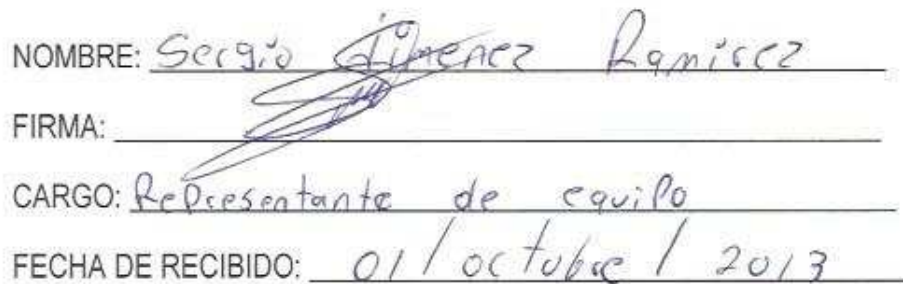 NOMBRE: Sergio Jimenez Ramirez
FIRMA:
CARGO: Representante de equipo
FECHA DE RECIBIDO: 01/octubre/2013